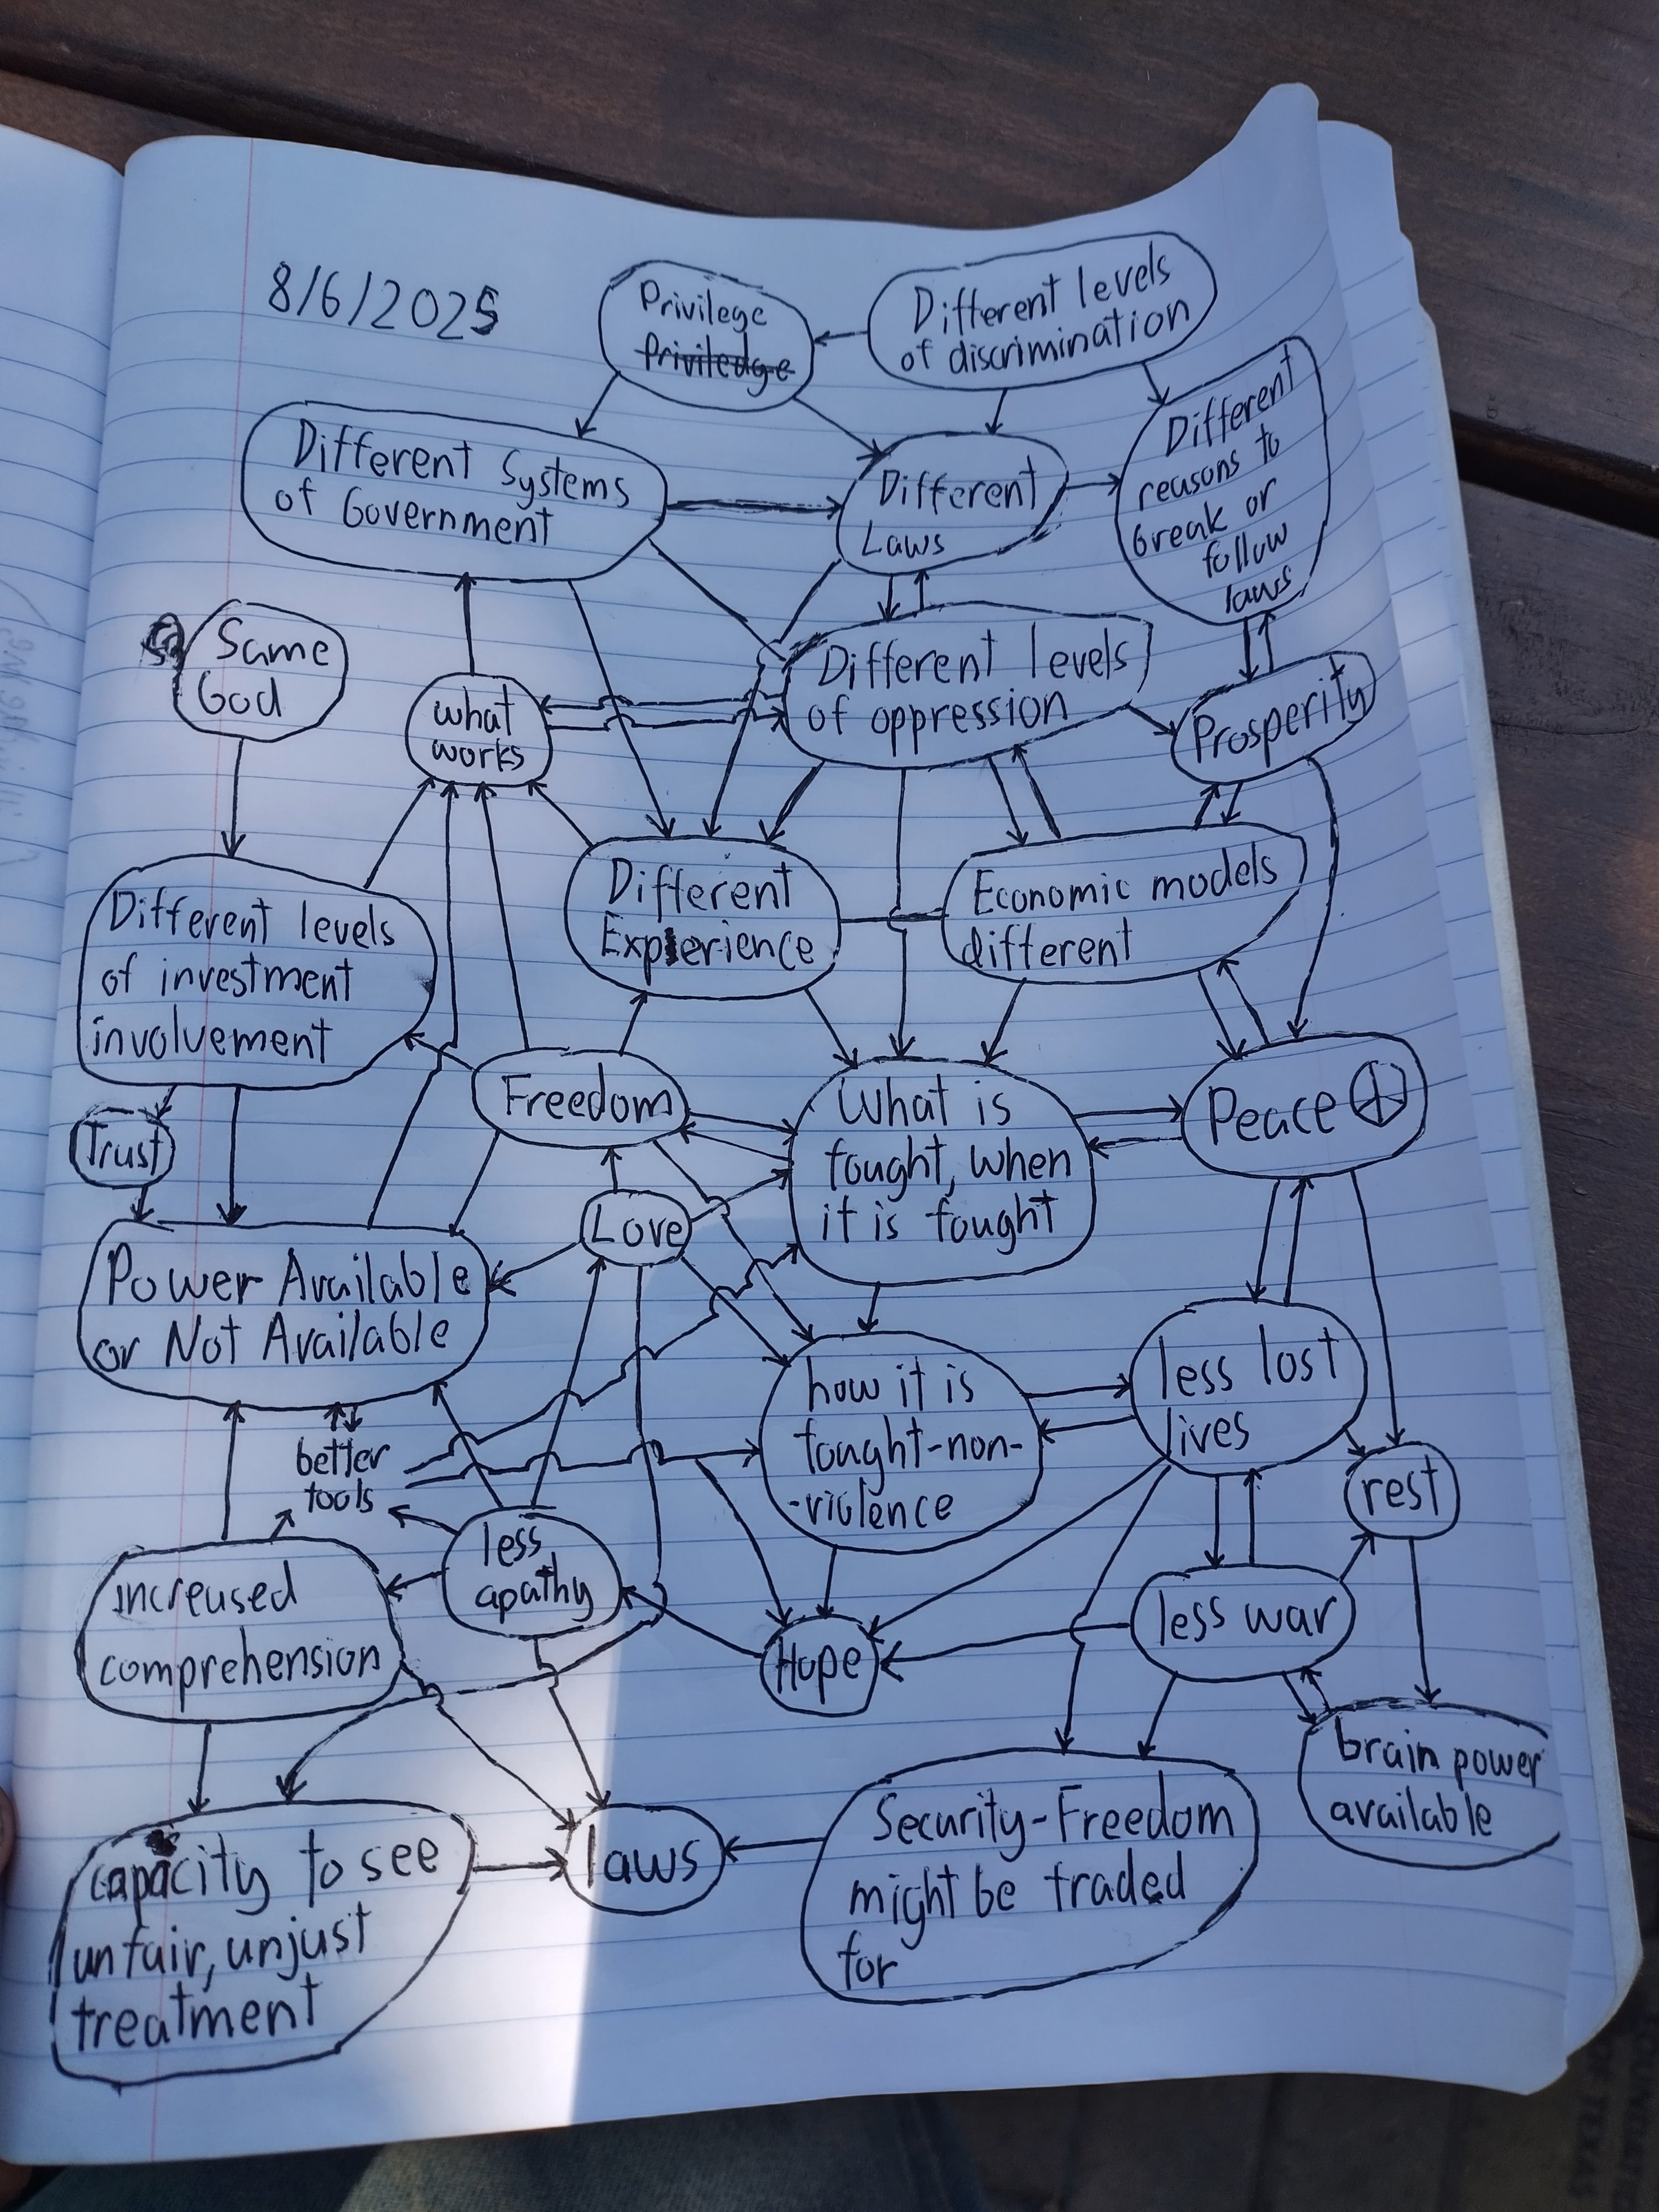 8/6/2025
Privilege
Priviledge
Different levels
of discrimination
Different Systems
of Government
Different
Laws
Different
reasons to
break or
follow
laws
Same
God
what
works
Different levels
of oppression
Prosperity
Different levels
of investment
involvement
Different
Experience
Economic models
different
Trust
Freedom
What is
fought, when
it is fought
Peace
Power Available
or Not Available
Love
better
tools
how it is
fought-non-
-violence
less lost
lives
rest
increased
comprehension
less
apathy
Hope
less war
brain power
available
capacity to see
unfair, unjust
treatment
laws
Security-Freedom
might be traded
for